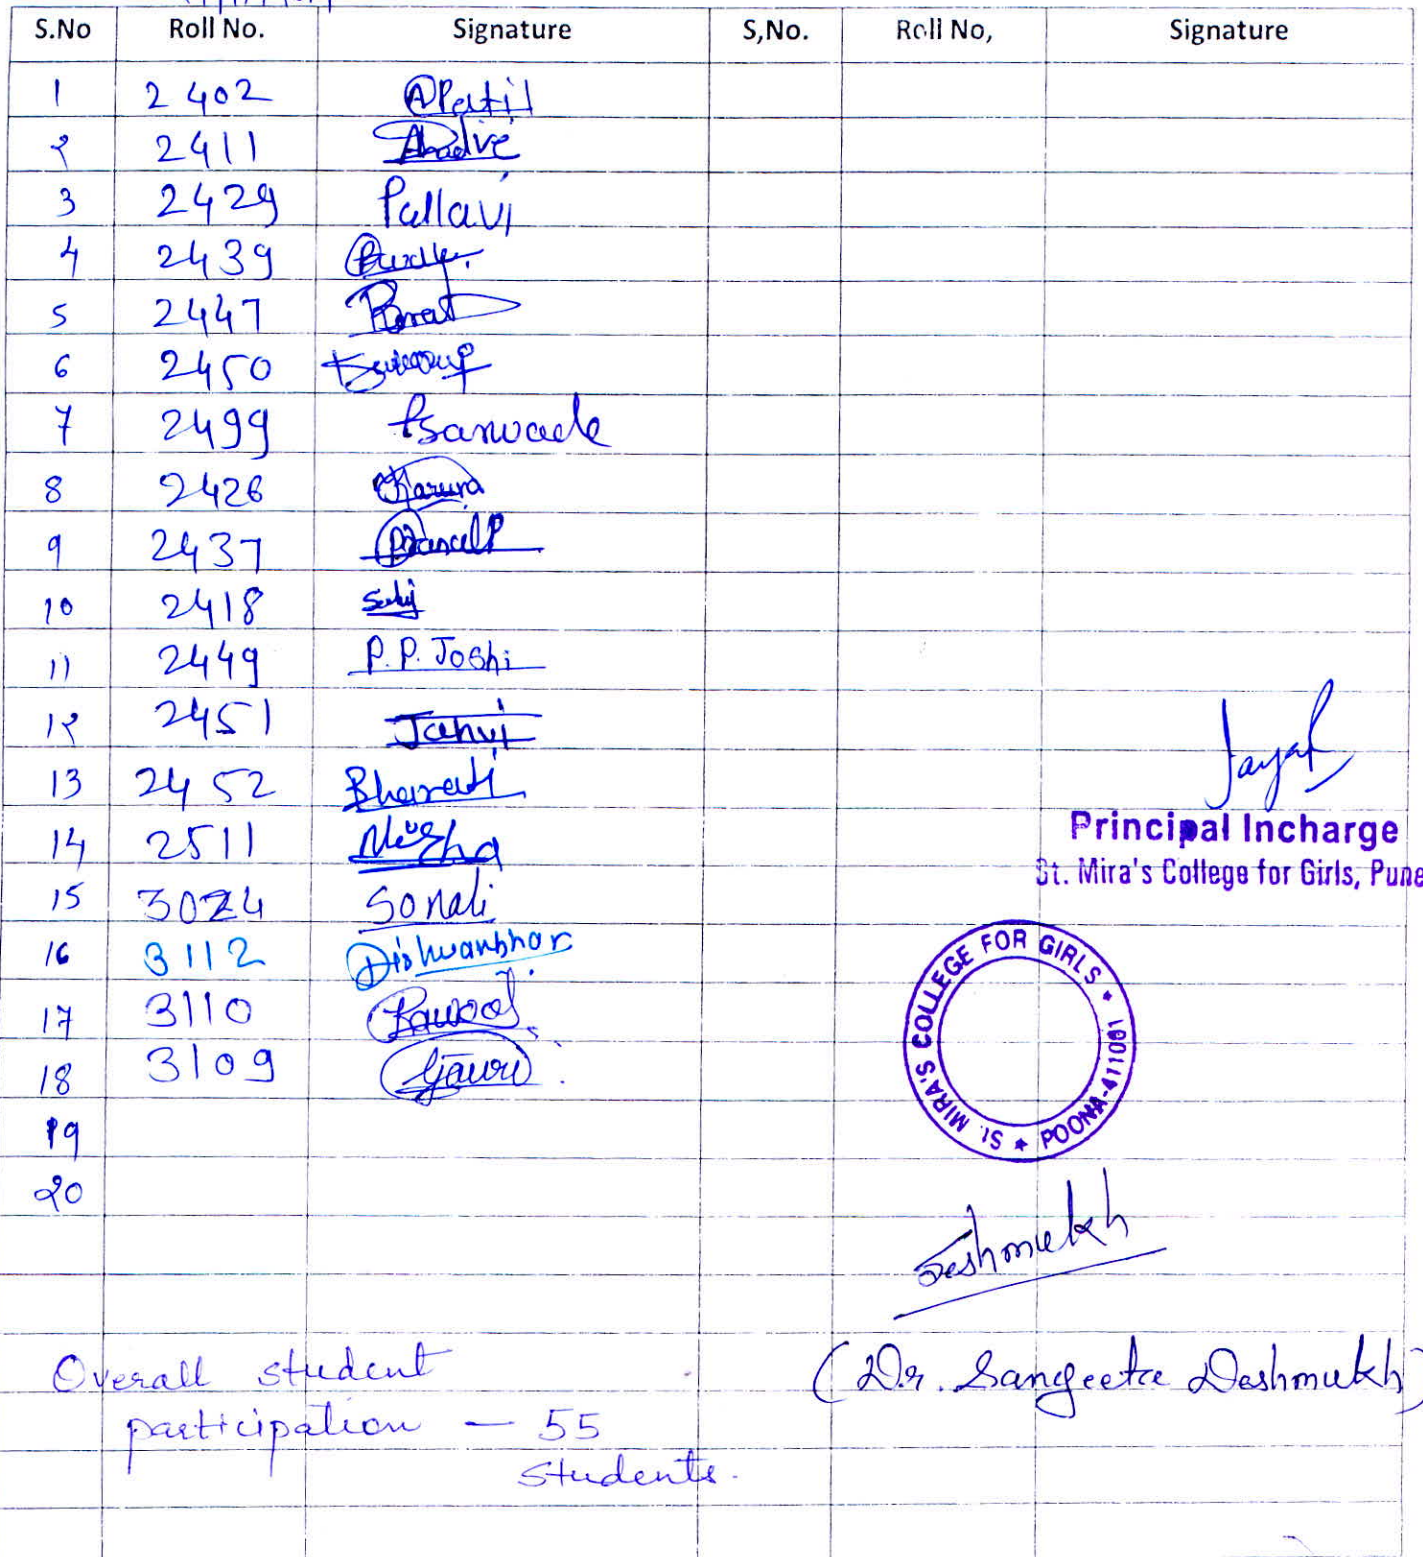 S.No Roll No. Signature S,No. Roll No, Signature
1 2402 APatil
२ 2411
3 2429 Pallavi
4 2439
5 2447
6 2450
7 2499 Psarwade
8 2426 Karuna
9 2437
10 2418
11 2449 P.P. Joshi
1२ 2451 Janvi
13 2452 Bharati
14 2511
15 3024 Sonali
16 3112 Dishwanbhar
17 3110 Rawool
18 3109 Gauri
19
२0
Principal Incharge
St. Mira's College for Girls, Pune
ST. MIRA'S COLLEGE FOR GIRLS * POONA-411001 *
Deshmukh
(Dr. Sangeeta Deshmukh)
Overall student
participation — 55
students.